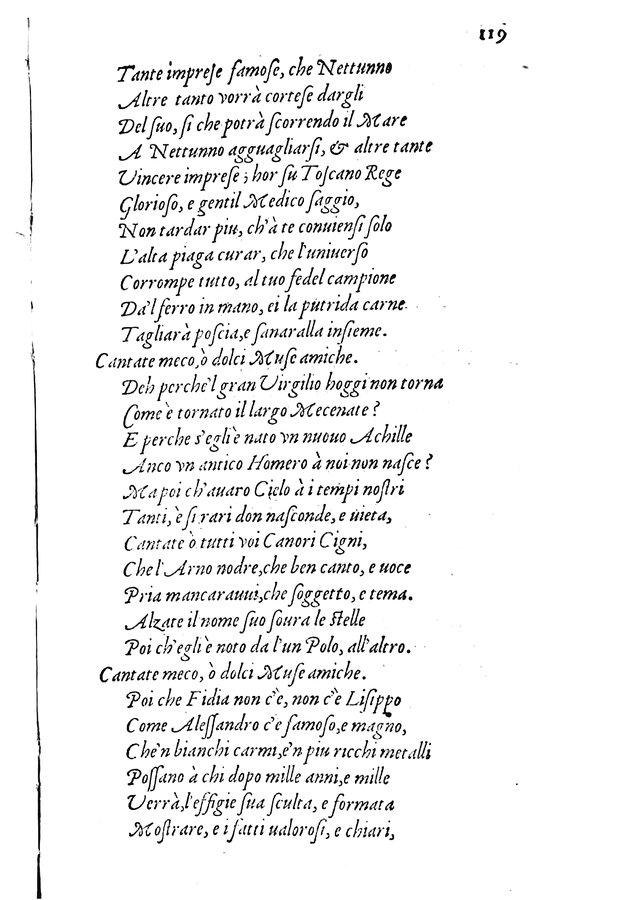 119
Tante impreſe famoſe, che Nettunno
Altre tanto vorrà corteſe dargli
Del ſuo, ſi che potrà ſcorrendo il Mare
A Nettunno agguagliarſi, & altre tante
Vincere impreſe; hor ſu Toſcano Rege
Glorioſo, e gentil Medico ſaggio,
Non tardar piu, ch'à te conuienſi ſolo
L'alta piaga curar, che l'uniuerſo
Corrompe tutto, al tuo fedel campione
Da'l ferro in mano, ei la putrida carne
Tagliarà poſcia, e ſanaralla inſieme.
Cantate meco, ò dolci Muſe amiche.
Deh perche'l gran Virgilio hoggi non torna
Come è tornato il largo Mecenate?
E perche s'egli è nato vn nuouo Achille
Anco vn antico Homero à noi non naſce?
Ma poi ch'auaro Cielo à i tempi noſtri
Tanti, e ſi rari don naſconde, e uieta,
Cantate ò tutti voi Canori Cigni,
Che l'Arno nodre, che ben canto, e uoce
Pria mancarauui, che ſoggetto, e tema.
Alzate il nome ſuo ſoura le ſtelle
Poi ch'egli è noto da l'un Polo, all'altro.
Cantate meco, ò dolci Muſe amiche.
Poi che Fidia non c'è, non c'è Liſippo
Come Aleſſandro c'è famoſo, e magno,
Che'n bianchi carmi, e'n piu ricchi metalli
Poſſano à chi dopo mille anni, e mille
Verrà, l'effigie ſua ſculta, e formata
Moſtrare, e i fatti ualoroſi, e chiari,